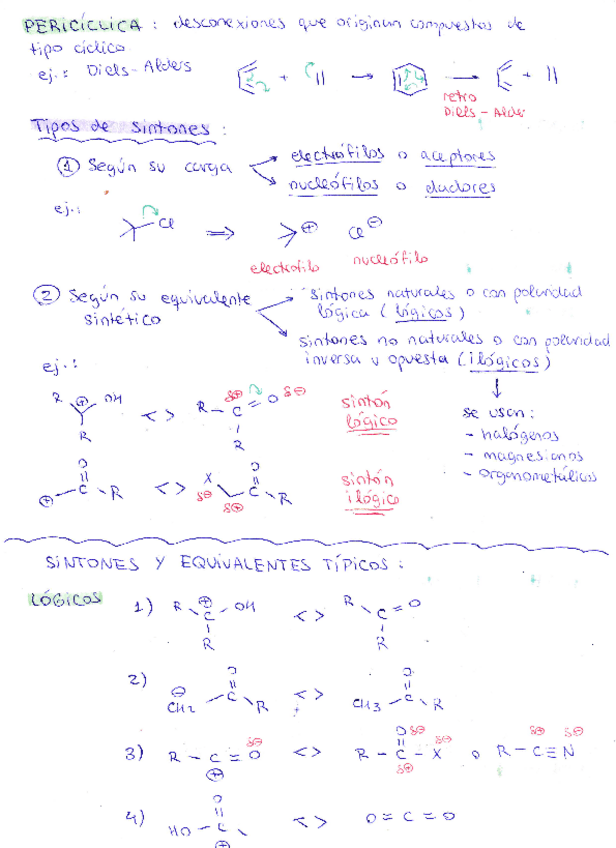 PERICÍCLICA : desconexiones que originan compuestos de
tipo cíclico
ej.: Diels-Alders
+ → → +
retro
Diels-Alder
Tipos de sintones :
① Según su carga
electrófilos o aceptores
nucleófilos o dadores
ej.:
Cl ⇒ ⊕ Cl ⊖
electrófilo nucleófilo
② Según su equivalente
sintético
sintones naturales o con polaridad
lógica (lógicos)
sintones no naturales o con polaridad
inversa u opuesta (ilógicos)
ej.:
R ⊕ OH R <> R - C = O R δ⊕ δ⊖
sintón
lógico
se usan:
- halógenos
- magnesianos
- organometálicos
⊕ C O R <> X C O R δ⊖ δ⊕
sintón
ilógico
SINTONES Y EQUIVALENTES TÍPICOS :
LÓGICOS
1) R ⊕ C OH R <> R C = O R
2) ⊖ CH2 C O R <> CH3 C O R
3) R - C = O ⊕ δ⊖ <> R - C - X O δ⊖ δ⊖ δ⊕ o R - C ≡ N δ⊕ δ⊖
4) HO - C O ⊕ <> O = C = O